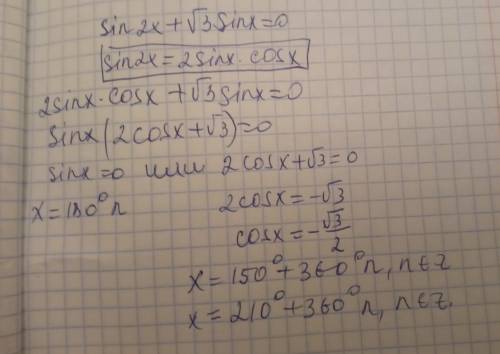 sin2x + √3 sinx = 0
sin2x = 2sinx · cosx
2sinx · cosx + √3 sinx = 0
sinx(2cosx + √3) = 0
sinx = 0 или 2cosx + √3 = 0
x = 180° n 2cosx = -√3
cosx = -√3/2
x = 150° + 360° n, n ∈ z
x = 210° + 360° n, n ∈ z.